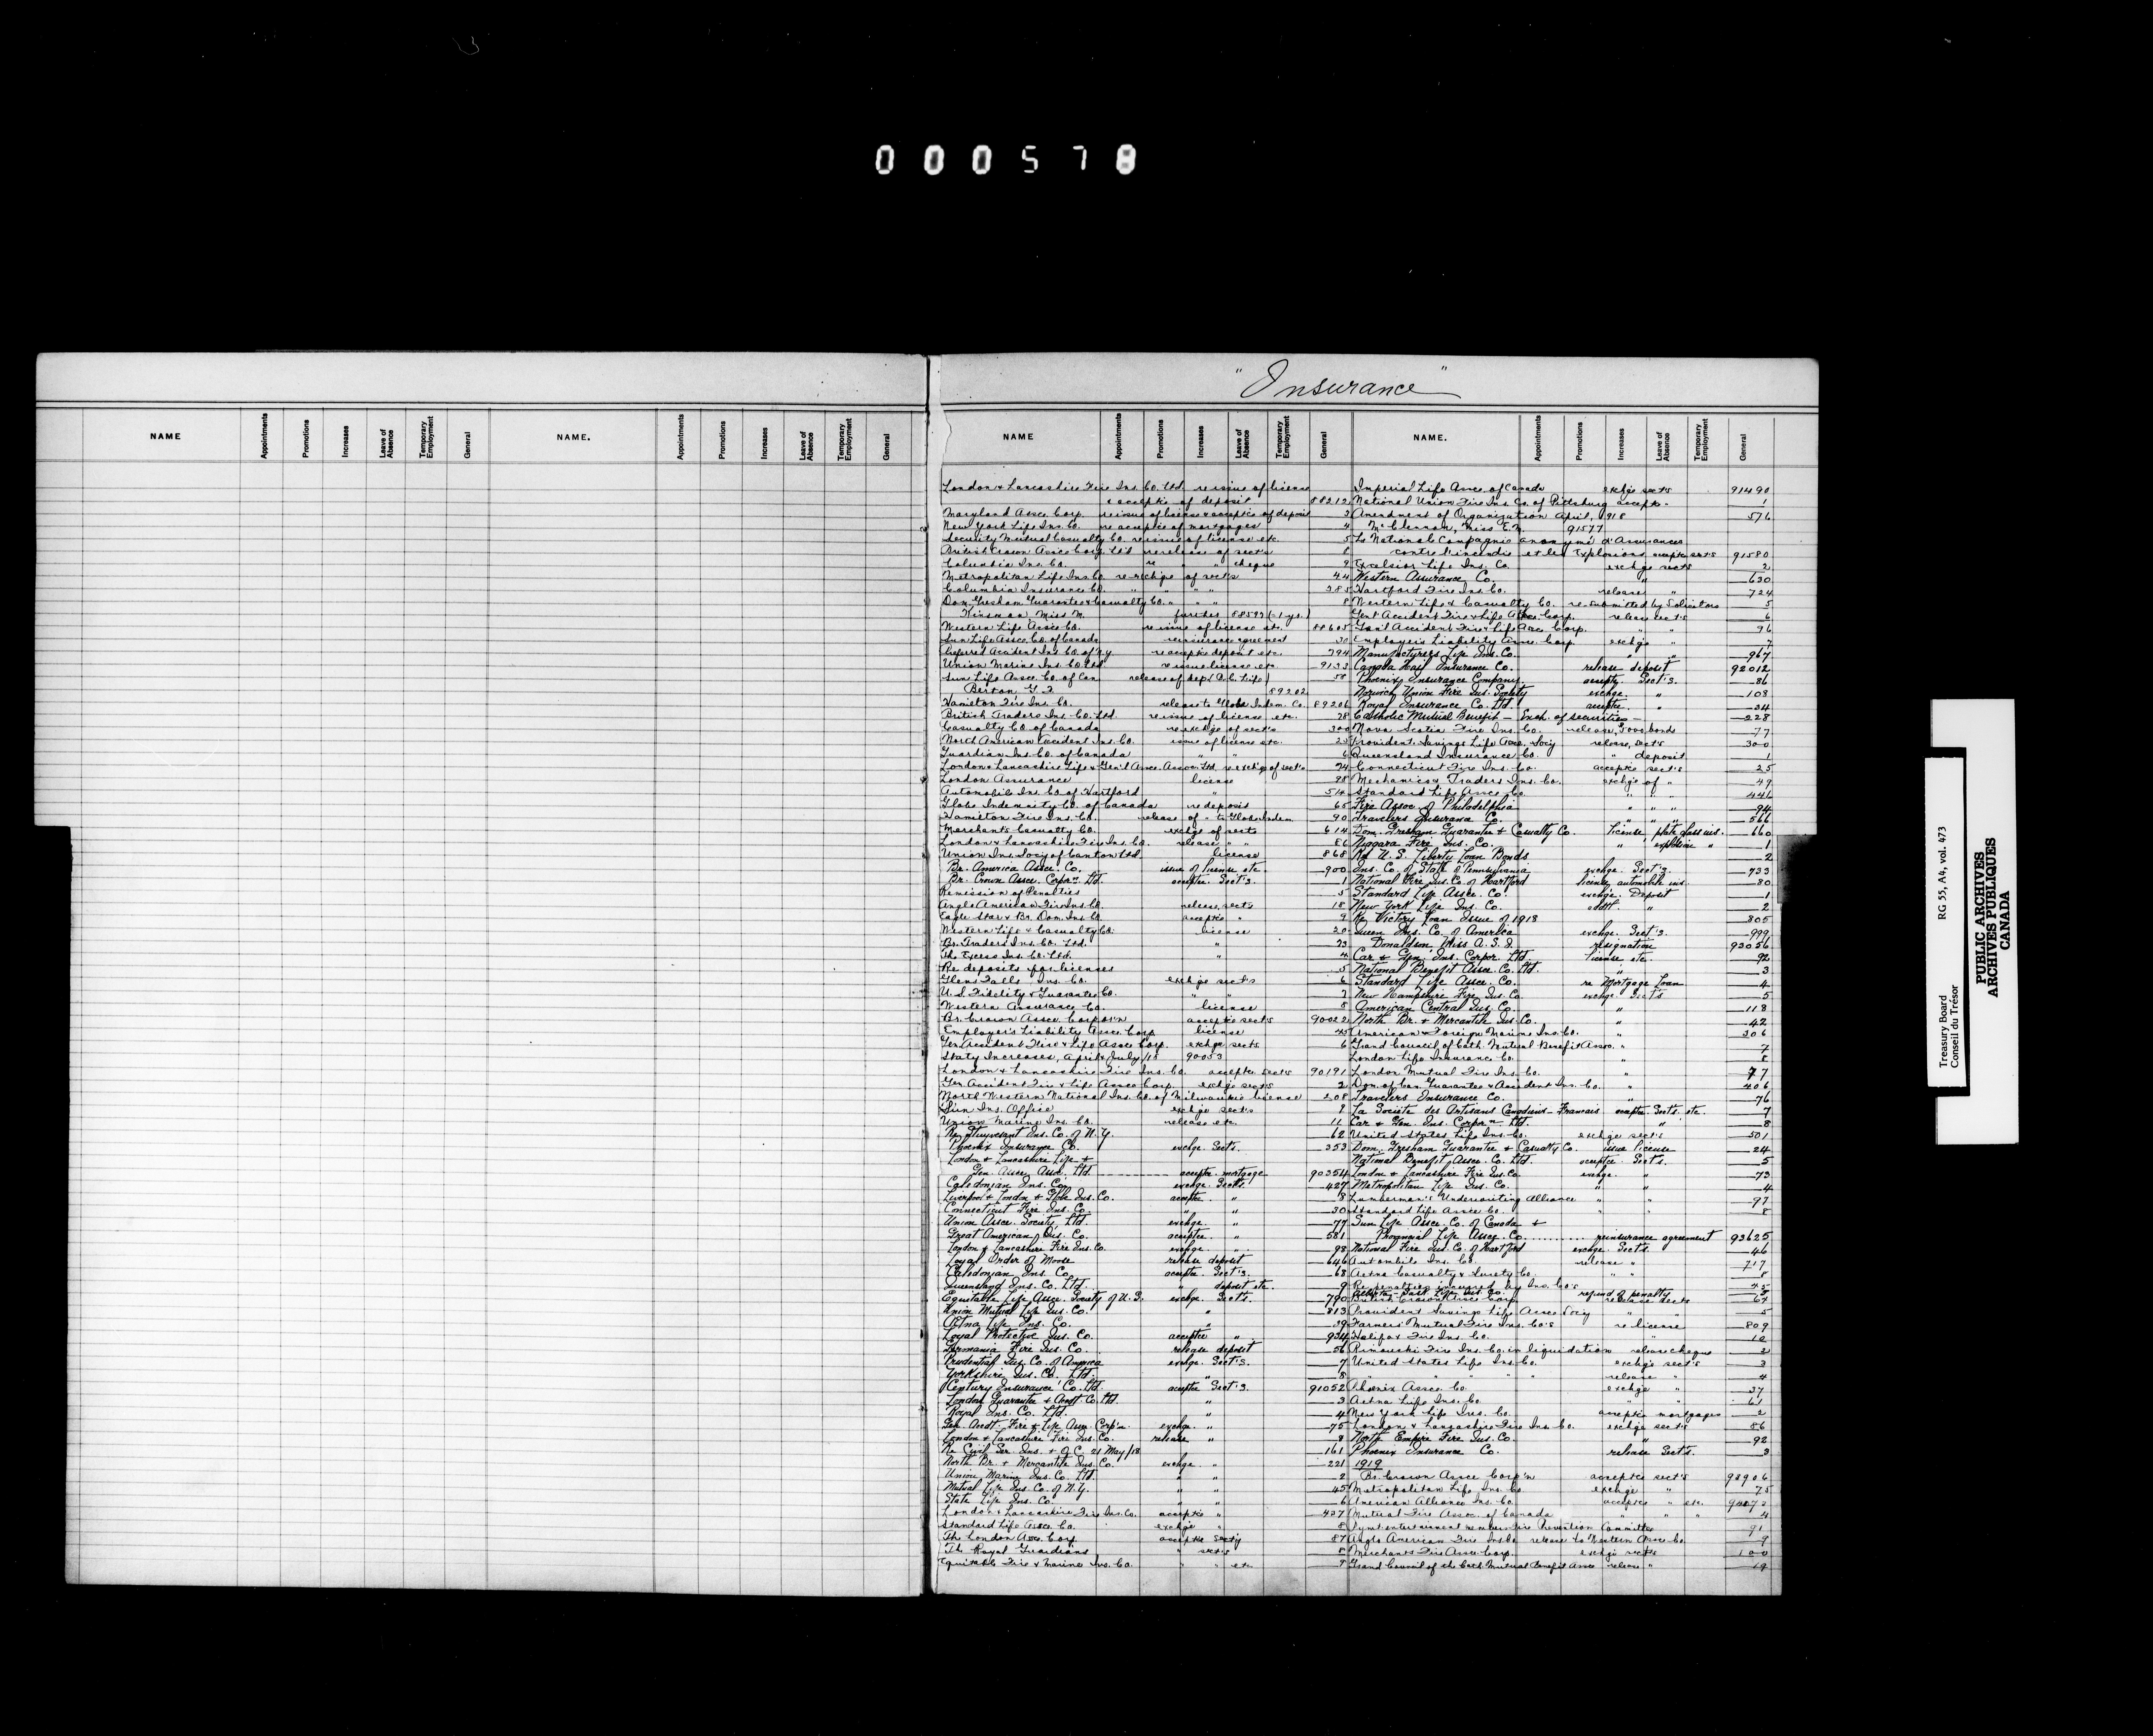 000578
"Insurance"
NAME Appointments Promotions Increases Leave of Absence Temporary Employment General NAME. Appointments Promotions Increases Leave of Absence Temporary Employment General
NAME Appointments Promotions Increases Leave of Absence Temporary Employment General NAME. Appointments Promotions Increases Leave of Absence Temporary Employment General
London & Lancashire Fire Ins. Co. Ltd. re issue of license
& acceptce of deposit 88212
Maryland Assce. Corp. re issue of license & acceptce of deposit 3
New York Life Ins. Co. re acceptce of mortgages 4
Security Mutual Casualty Co. re issue of license etc. 5
British Crown Assce Corp. Ltd re release of sect's 8
Columbia Ins. Co. re " " cheque 9
Metropolitan Life Ins. Co. re exchge of sect's 44
Columbia Insurance Co. " " " 385
Dom. Gresham Guarantee & Casualty Co. " " " 8
Kinsman Miss M. further 88593 (-1 yr.)
Western Life Assce Co. re issue of license etc. 88605
Sun Life Assce. Co. of Canada reinsurance agreement 30
Preferred Accident Ins. Co. of N.Y. re acceptce deposit etc. 794
Union Marine Ins. Co. Ltd re issue license etc. 9133
Sun Life Assce. Co. of Can release of dep't (D.C. Life) 58
Berton G. J. 89202
Hamilton Fire Ins. Co. release to Globe Indem. Co. 89206
British Traders Ins. Co. Ltd. re issue of license etc. 78
Casualty Co. of Canada re exchge of sect's 300
North American Accident Ins. Co. issue of license etc. 25
Guardian Ins. Co. of Canada " " 6
London & Lancashire Life & Gen'l Assce. Assoc'n Ltd. re exchge of sect's 74
London Assurance license 98
Automobile Ins. Co. of Hartford " 514
Globe Indemnity Co. of Canada re deposit 65
Hamilton Fire Ins. Co. release of " to Globe Indem 90
Merchants Casualty Co. exchge of sects 614
London & Lancashire Fire Ins. Co. release " " 86
Union Ins. Soc'y of Canton Ltd. license 868
Br. America Assce. Co. issue of license etc. 900
Br. Crown Assce. Corp'n. Ltd. acceptce. Sect's. 1
Remission of Penalties 5
Anglo American Fire Ins. Co. release sect's 18
Eagle Star & Br. Dom. Ins. Co. acceptce " 9
Western Life & Casualty Co. license 20
Br. Traders Ins. Co. Ltd. " 73
The Excess Ins. Co. Ltd. " 4
Re deposits for licenses 5
Glens Falls Ins. Co. exchge sect's 6
U.S. Fidelity & Guarantee Co. " " 7
Western Assurance Co. license 8
Br. Crown Assce. Corpor'n acceptce sect's 90022
Employer's Liability Assce. Corp. license 45
Gen. Accident Fire & Life Assce Corp. exchge sects 6
Stat'y Increases, April & July/18 90053
London & Lancashire Fire Ins. Co. acceptce sect's 90191
Gen. Accident Fire & Life Assce Corp. exchge sect's 2
North Western National Ins. Co. of Milwaukie license 208
Sun Ins. Office exchge sect's 9
Union Marine Ins. Co. release etc. 11
Re Stuyvesant Ins. Co. of N.Y. 62
Phoenix Insurance Co. exchge. Sect's. 353
London & Lancashire Life &
Gen. Assce. Assoc. Ltd. acceptce mortgage 90354
Caledonian Ins. Co. exchge. Sect's. 427
Liverpool & London & Globe Ins. Co. acceptce. " 8
Connecticut Fire Ins. Co. " " 30
Union Assce. Society, Ltd exchge. " 77
Great American Ins. Co. acceptce. " 581
London & Lancashire Fire Ins. Co. exchge. " 98
Loyal Order of Moose release deposit 646
Caledonian Ins. Co. acceptce Sect's. 68
Queensland Ins. Co. Ltd. " deposit etc. 9
Equitable Life Assce. Society of U.S. exchge. Sect's. 790
Union Mutual Life Ins. Co. " 813
Aetna Life Ins. Co. "
Loyal Protective Ins. Co. acceptce " 934
Germania Fire Ins. Co. release deposit 56
Prudential Ins. Co. of America exchge. Sect's. 7
Yorkshire Ins. Co. Ltd. " " 8
Century Insurance Co. Ltd. acceptce Sect's. 91052
London Guarantee & Accdt. Co. Ltd. " 3
Royal Ins. Co. Ltd. " 4
Gen. Accdt. Fire & Life Assce. Corp'n. exchge. " 75
London & Lancashire Fire Ins. Co. release " 8
Re Civil Ser. Ins. & O/C 21 May/18 161
North Br. & Mercantile Ins. Co. exchge " 221
Union Marine Ins. Co. Ltd. " " 2
Mutual Life Ins. Co. of N.Y. " " 45
State Life Ins. Co. " " 6
London & Lancashire Fire Ins. Co. acceptce " 437
Standard Life Assce Co. exchge " 8
The London Assce. Corp. acceptce 87
The Royal Guardians " sect's 8
Equitable Fire & Marine Ins. Co. " " etc.
Imperial Life Assce. of Canada exchge sects 91490
National Union Fire Ins. Co. of Pittsburg acceptce 1
Amendment of Organization April, 1918 576
McClennan, Miss E. M. 91577
La Nationale Compagnie anonyme d'Assurances
contre l'incendie et les Explosions acceptce sect's 91580
Excelsior Life Ins. Co. exchge sects 2
Western Assurance Co. " 630
Hartford Fire Ins. Co. release " 724
Western Life & Casualty Co. re-submitted by Solicitors 5
Gen'l Accident Fire & Life Assce. Corp. release sect's 6
Gen'l Accident Fire & Life Assce Corp. " " 96
Employer's Liability Assce. Corp. exchge " 7
Manufacturers Life Ins. Co. " " 967
Canada Hail Insurance Co. release deposit 92012
Phoenix Insurance Company. acceptce. Sect's. 86
Norwich Union Fire Ins. Society exchge. " 108
Royal Insurance Co. Ltd. acceptce. " 34
Catholic Mutual Benefit — Exch. of securities — 228
Nova Scotia Fire Ins. Co. release, 5000 bonds 77
Provident Savings Life Assce. Soc'y release, sect's 300
Queensland Insurance Co. " deposit 1
Connecticut Fire Ins. Co. acceptce sect's 25
Mechanics & Traders Ins. Co. exchge of " 49
Standard Life Assce Co. " " " 441
Fire Assoc. of Philadelphia " " " 94
Travelers Insurance Co. " " " 566
Dom. Gresham Guarantee & Casualty Co. license plate glass ins. 660
Niagara Fire Ins. Co. " explosion " 1
Re U.S. Liberty Loan Bonds 2
Ins. Co. of State of Pennsylvania exchge. Sect's. 733
National Fire Ins. Co. of Hartford license automobile ins. 80
Standard Life Assce. Co. exchge. Deposit 1
New York Life Ins. Co. addl. " 2
Re Victory Loan Issue of 1918 805
Queen Ins. Co. of America exchge. Sect's. 999
Donaldson, Miss A. S. J. resignation 93056
Car & Gen. Ins. Corpor. Ltd. license etc. 92
National Benefit Assce. Co. Ltd. " 3
Standard Life Assce. Co. re Mortgage Loan 4
New Hampshire Fire Ins. Co. exchge Sect's 5
American Central Ins. Co. " 118
North Br. & Mercantile Ins. Co. " 42
American & Foreign Marine Ins. Co. " 306
Grand Council of Cath. Mutual Benefit Assoc. " 7
London Life Insurance Co. " 8
London Mutual Fire Ins. Co. " 77
Dom. of Can. Guarantee & Accident Ins. Co. " 406
Travelers Insurance Co. " 76
La Societe des Artisans Canadiens-Francais acceptce Sect's. etc. 7
Car & Gen. Ins. Corpn. Ltd. " 8
United States Life Ins. Co. exchge sect's 501
Dom. Gresham Guarantee & Casualty Co. issue license 24
National Benefit Assce. Co. Ltd. acceptce. Sect's. 5
London & Lancashire Fire Ins. Co. exchge. " 73
Metropolitan Life Ins. Co. " " 4
Lumbermen's Underwriting Alliance " " 97
Standard Life Assce Co. " " 8
Sun Life Assce. Co. of Canada &
Provincial Life Assce. Co. reinsurance agreement 93625
National Fire Ins. Co. of Hartford exchge. Sect's. 46
Automobile Ins. Co. release " 717
Aetna Casualty & Surety Co. " " 8
Re penalties incurred by Ins. Co's 45
refund of penalty
British Crown Assce Corp. release sects 64
Provident Savings Life Assce Soc'y " " 5
Farmers' Mutual Fire Ins. Co's re license 809
Halifax Fire Ins. Co. " 10
Rimouski Fire Ins. Co. in liquidation release cheque 2
United States Life Ins. Co. exchge sect's 3
" " " " release " 4
Phoenix Assce. Co. exchge " 37
Aetna Life Ins. Co. " " 61
New York Life Ins. Co. acceptce mortgages 2
London & Lancashire Fire Ins. Co. exchge sect's 86
North Empire Fire Ins. Co. " 92
Phoenix Insurance Co. release Sect's. 3
1919
Br. Crown Assce Corp'n acceptce sect's 93906
Metropolitan Life Ins. Co. exchge " 75
American Alliance Ins. Co. acceptce " etc.
Mutual Fire Assoc. of Canada " " " 4
Pymt. entertainment members Fire Prevention Committee 91
Anglo American Fire Ins. Co. release to Western Assce. Co. 9
Merchants Fire Assce. Corp. exchge sect's 100
Grand Council of the Cath. Mutual Benefit Assoc release " 19
Treasury Board RG 55, A4, vol. 473
Conseil du Trésor
PUBLIC ARCHIVES
ARCHIVES PUBLIQUES
CANADA